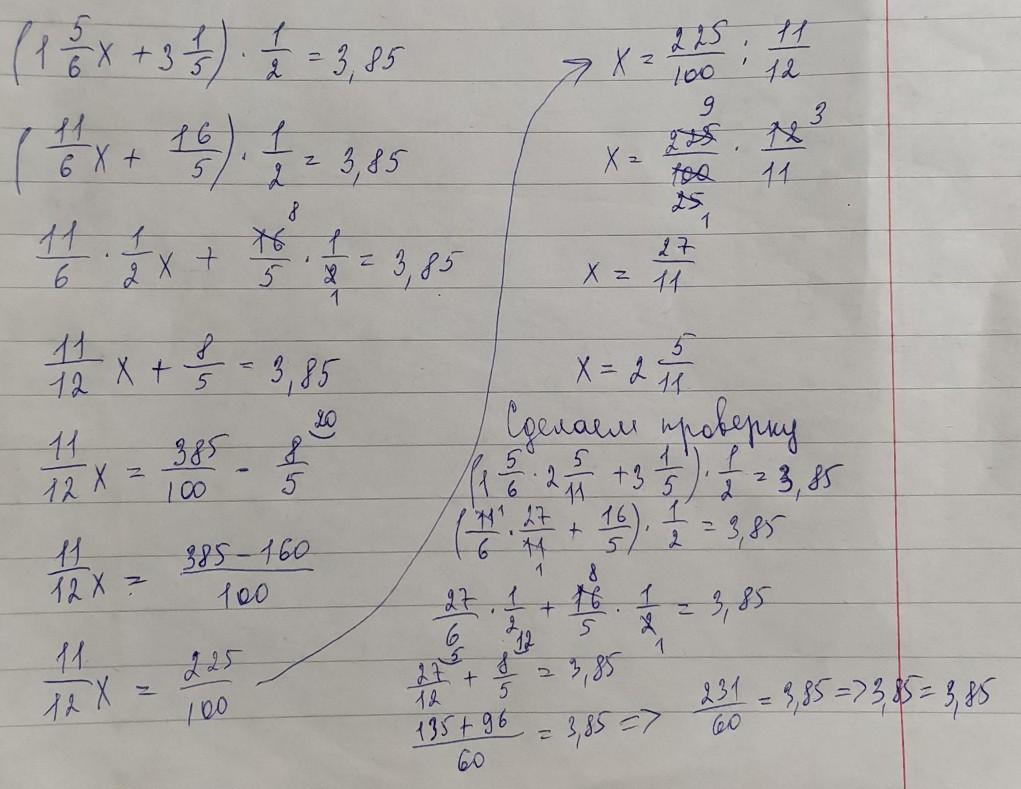 (1 5/6 x + 3 1/5) · 1/2 = 3,85
(11/6 x + 16/5) · 1/2 = 3,85
11/6 · 1/2 x + 16/5 · 1/2 = 3,85
8
1
11/12 x + 8/5 = 3,85
11/12 x = 385/100 - 8/5
20
11/12 x = 385-160/100
11/12 x = 225/100
x = 225/100 : 11/12
x = 225/100 · 12/11
9
3
25
1
x = 27/11
x = 2 5/11
Сделаем проверку
(1 5/6 · 2 5/11 + 3 1/5) · 1/2 = 3,85
(11/6 · 27/11 + 16/5) · 1/2 = 3,85
1
1
27/6 · 1/2 + 16/5 · 1/2 = 3,85
8
1
27/12 + 8/5 = 3,85
5
12
135+96/60 = 3,85 => 231/60 = 3,85 => 3,85 = 3,85